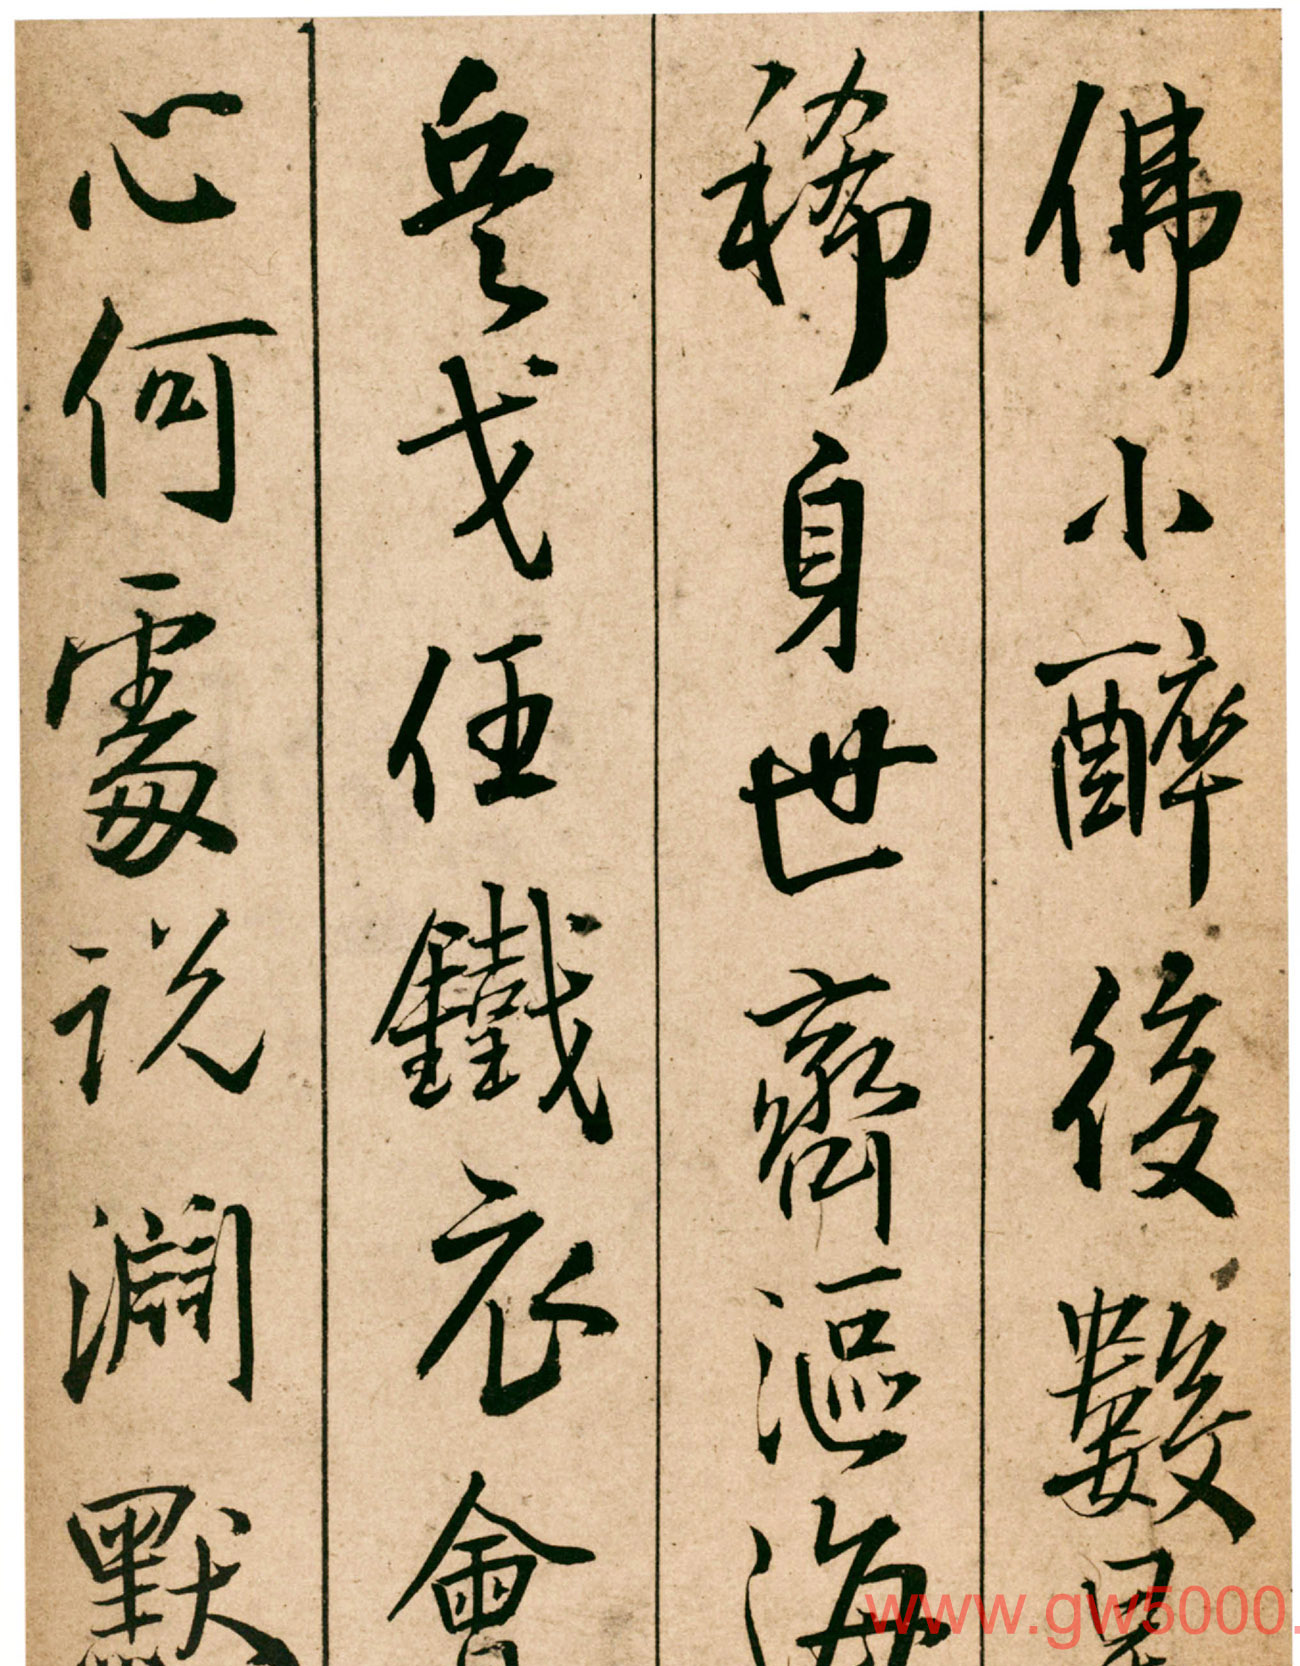 佛小醉後數星
稀身世齊漚海
兵戈任鐵衣會
心何處說淵默
www.gw5000.